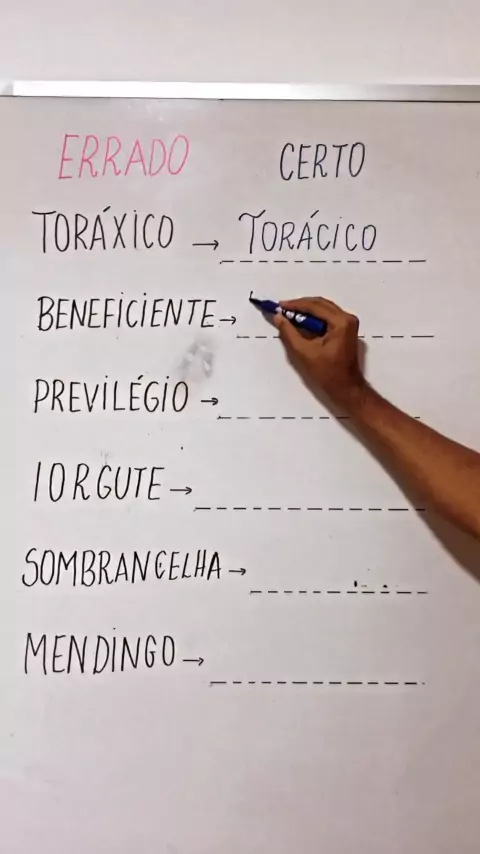 ERRADO CERTO
TORÁXICO → TORÁCICO
BENEFICIENTE →
PREVILÉGIO →
IORGUTE →
SOMBRANCELHA →
MENDINGO →